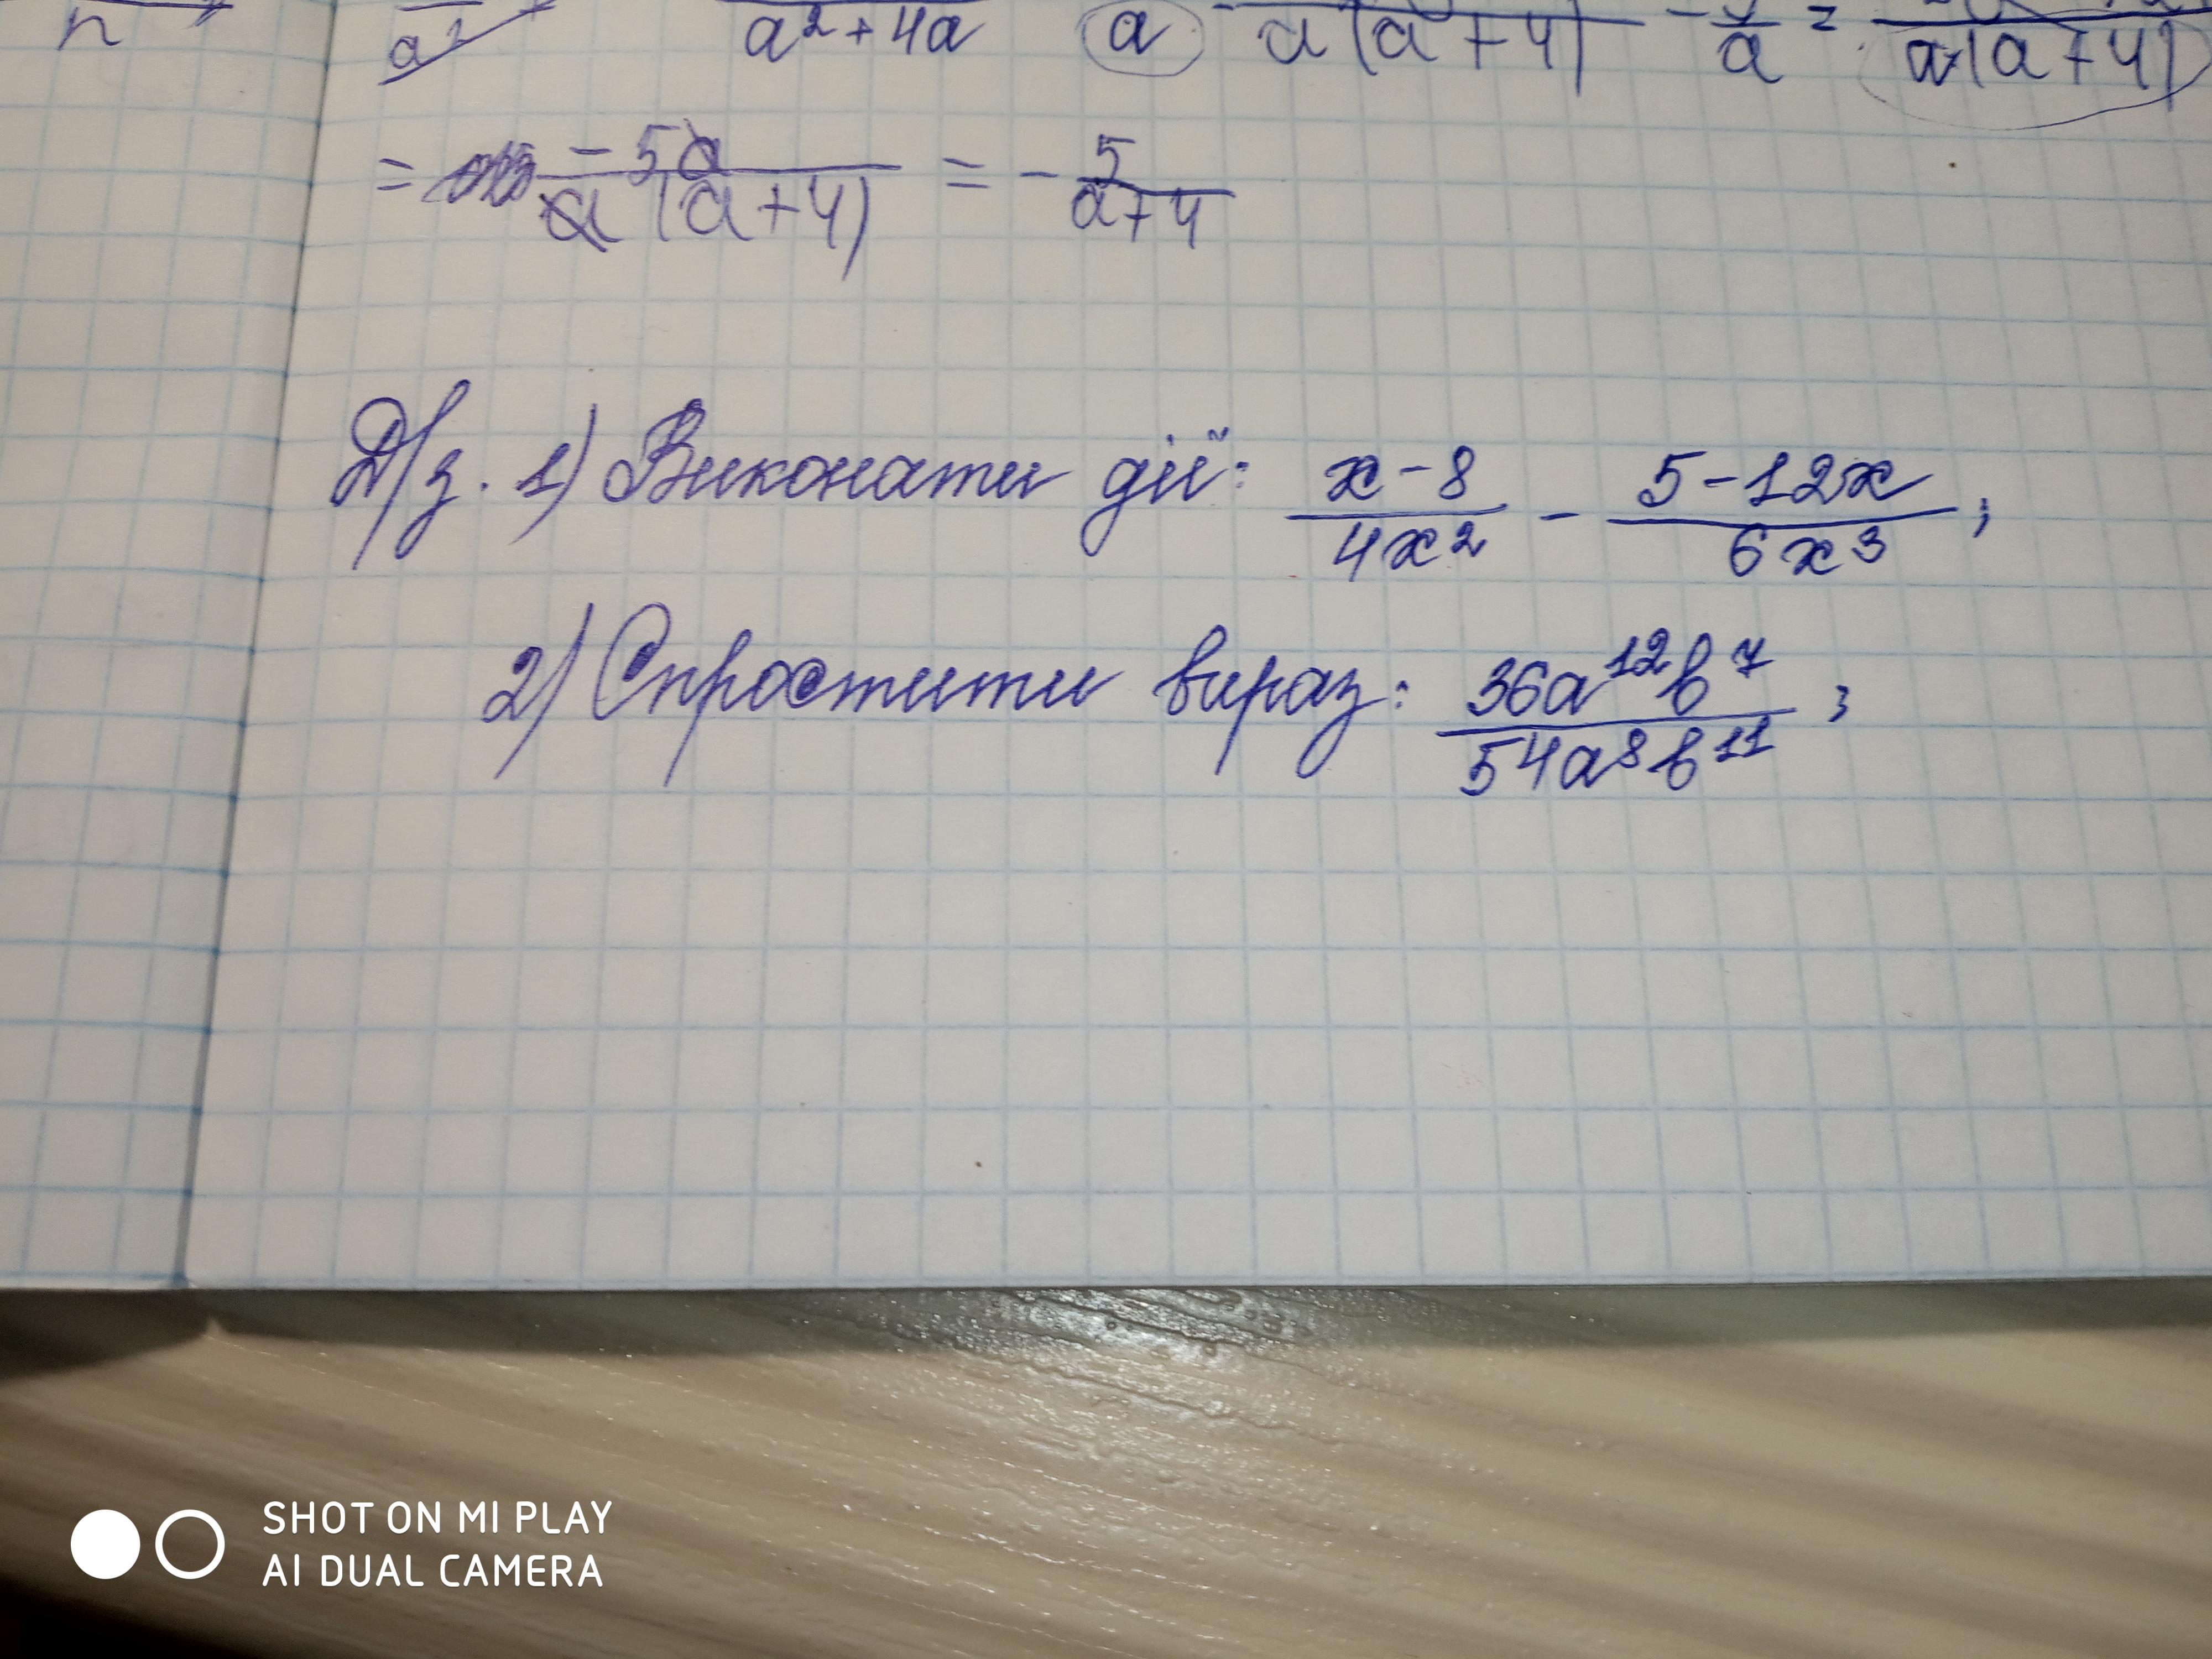 a² a²+4a a a(a+4) - a = a(a+4)
= -5a/a(a+4) = - 5/a+4
Д/з. 1) Виконати дії: x-8/4x² - 5-12x/6x³ ;
2) Спростити вираз: 36a¹²b⁷/54a⁸b¹¹ ;
SHOT ON MI PLAY
AI DUAL CAMERA